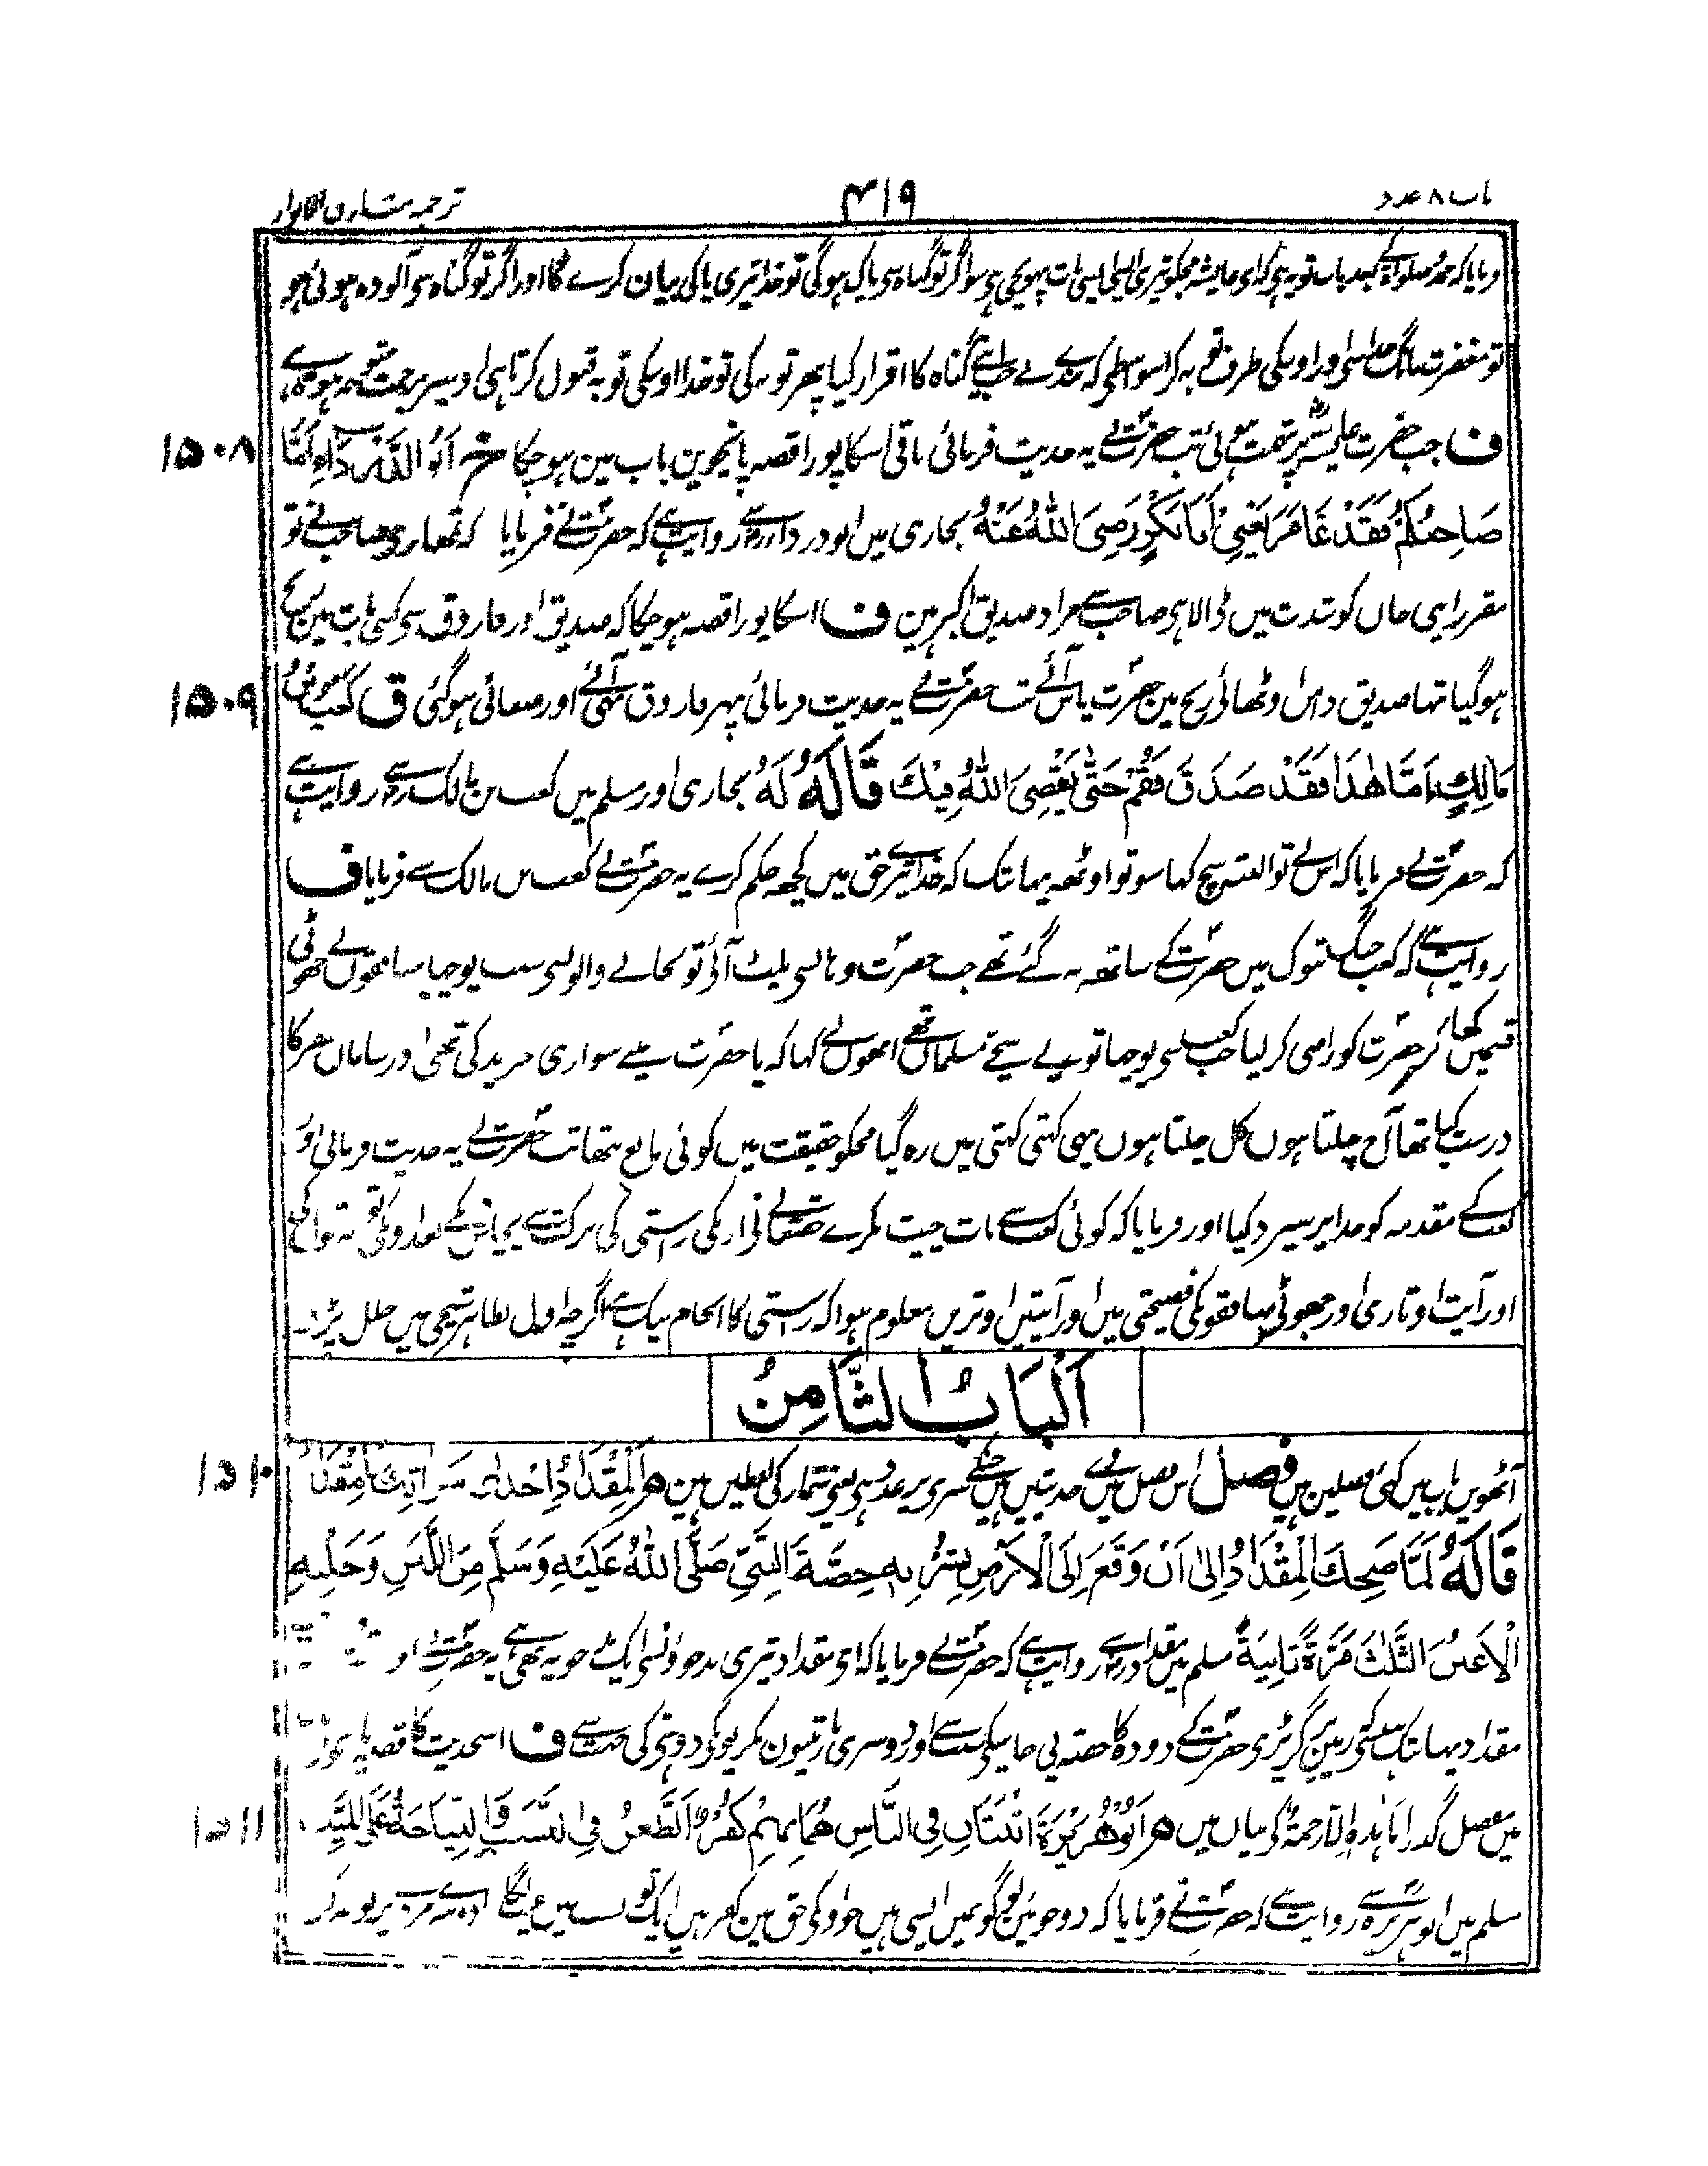 باب ۸ عدد
۴۱۹
ترجمہ مشارق الانوار
فرمایا کہ حمد و صلوۃ کے بعد بات تو یہ ہی کہ ای عایشہ مجکو تیری ایسی ایسی بات پہونچی ہی سو اگر تو گناہ سی پاک ہوگی تو خدا تیری پاکی بیان کرے گا اور اگر تو گناہ سی آلودہ ہوئی ہو
تو مغفرت مانگ خدا سی اور اوسکی طرف توبہ کر اسواسطی کہ بندے نے جب اپنے گناہ کا اقرار کیا پھر توبہ کی تو خدا اوسکی توبہ قبول کرتا ہی اوسپر رحمت متوجہ
۱۵۰۸
ف جب حضرت عایشہ پر تہمت ہوئی تب حضرت نے یہ حدیث فرمائی باقی اسکا پورا قصہ پانچوین باب مین ہو چکا خ ابو الدرداء اَمَّا
صَاحِبُكُمْ فَقَدْ غَامَرَ يَعْنِي اَبَا بَكْرٍ رَضِيَ اللهُ عَنْهُ بخاری میں ابو درداء رضہ سے روایت ہے کہ حضرت نے فرمایا کہ تمھاری صاحب نے تو
مقرر اپنی جان کو شدت میں ڈالا ہی صاحب سے مراد صدیق اکبر ہین ف اسکا پورا قصہ ہو چکا کہ صدیق اور فاروق سی کسی بات مین رنج
۱۵۰۹
ہو گیا تہا صدیق دامن اوٹھائی رنج مین حضرت پاس آئے تب حضرت نے یہ حدیث فرمائی پہر فاروق بھی آئے اور صفائی ہو گئی ق كعب بن
مَالِكٍ اَمَّا هٰذَا فَقَدْ صَدَقَ فَقُمْ حَتّٰى يَقْضِيَ اللهُ فِيْكَ قَالَهُ لَهُ بخاری اور مسلم میں کعب بن مالک رضہ سے روایت ہے
کہ حضرت نے فرمایا کہ اس نے تو البتہ سچ کہا سو تو اوٹھ یہانتک کہ خدا تیرے حق میں کچھ حکم کرے یہ حضرت نے کعب بن مالک سے فرمایا ف
روایت ہے کہ کعب جنگ تبوک میں حضرت کے ساتھ نہ گئے تھے جب حضرت وہانسی پلٹ آئی تو نجانے والونسی سبب پوچھا منافقوں نے جھوٹی
قسمیں کھا کر حضرت کو راضی کر لیا جب کعب سی پوچھا تو یہ سچے مسلمان تھے انھوں نے کہا کہ یا حضرت مینے سواری خرید کی تھی اور سامان سفر کا
درست کیا تھا آج چلتا ہوں کل چلتا ہوں یہی کہتی کہتی میں رہ گیا مجکو حقیقت میں کوئی مانع نتھا تب حضرت نے یہ حدیث فرمائی اور
کعب کے مقدمہ کو خدا پر سپرد کیا اور فرمایا کہ کوئی کعب سے بات چیت نکرے حقتعالے نے انکی راستی کی برکت سے پچاس دن کے بعد اونکی توبہ قبول کی
اور آیت اوتاری اور جھوٹی منافقونکی فضیحتی میں اور آیتیں اوتریں معلوم ہوا کہ راستی کا انجام نیک ہے اگرچہ اول بظاہر نتیجی میں خلل پڑے
اَلْبَابُ الثَّامِنُ
۱۵۱۰
آٹھویں باب میں کئی فصلین ہیں فصل اس فصل میں وے حدیثیں ہیں جنکے سری پر عدد ہی یعنی شمار کی لفظین ہین م اَلْمِقْدَادُ اِحْدٰى سَوْاٰتِكَ يَا مِقْدَادُ
قَالَهُ لَمَّا ضَحِكَ الْمِقْدَادُ اِلٰى اَنْ وَقَعَ اِلَى الْاَرْضِ لِشُرْبِهِ حِصَّةَ النَّبِيِّ صَلَّى اللهُ عَلَيْهِ وَسَلَّمَ مِنَ اللَّبَنِ وَحَلْبِهِ
الْاَعْنُزَ الثَّلٰثَ مَرَّةً ثَانِيَةً مسلم میں مقداد رضہ سے روایت ہے کہ حضرت نے فرمایا کہ ای مقداد تیری بدخوؤنسی ایک خو یہ بھی ہے یہ حضرت نے
مقداد یہانتک ہنسی کہ زمین پر گر پڑی حضرت کے دودہ کا حصہ پی جانیکے سبب سے اور دوسری بار تینون بکریونکو دوہنی کی سبب سے ف اس حدیث کا قصہ پانچویں
۱۵۱۱
میں مفصل گذرا ما ہذہ الا رحمۃ کی بیان میں م اَبُوْ هُرَيْرَةَ اثْنَتَانِ فِي النَّاسِ هُمَا بِهِمْ كُفْرٌ اَلطَّعْنُ فِي النَّسَبِ وَالنِّيَاحَةُ عَلَى الْمَيِّتِ
مسلم میں ابو ہریرہ رضہ سے روایت ہے کہ حضرت نے فرمایا کہ دو خوئیں لوگوں میں ایسی ہیں جو اونکی حق مین کفر ہیں ایک تو نسب میں عیب لگانا